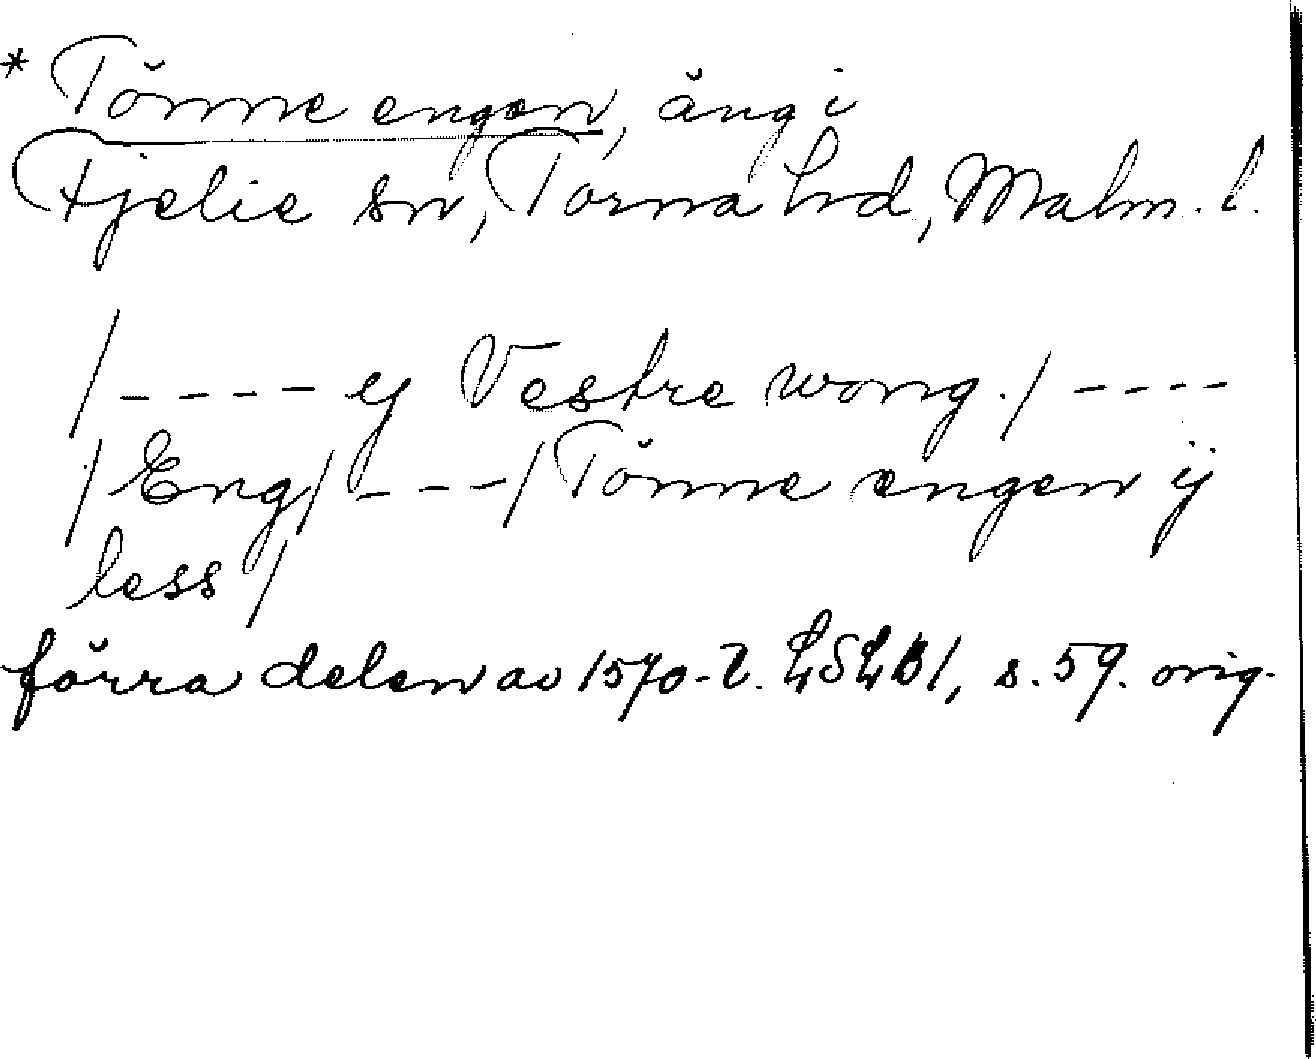 * Tönne engen, äng i
Fjelie sn, Torna hrd, Malm. l.
/ - - - - ij Vestre wong. / - - - -
/ Eng / - - - / Tönne engen ij
less /
förra delen av 1570-t. LSLB1, s. 59. orig.